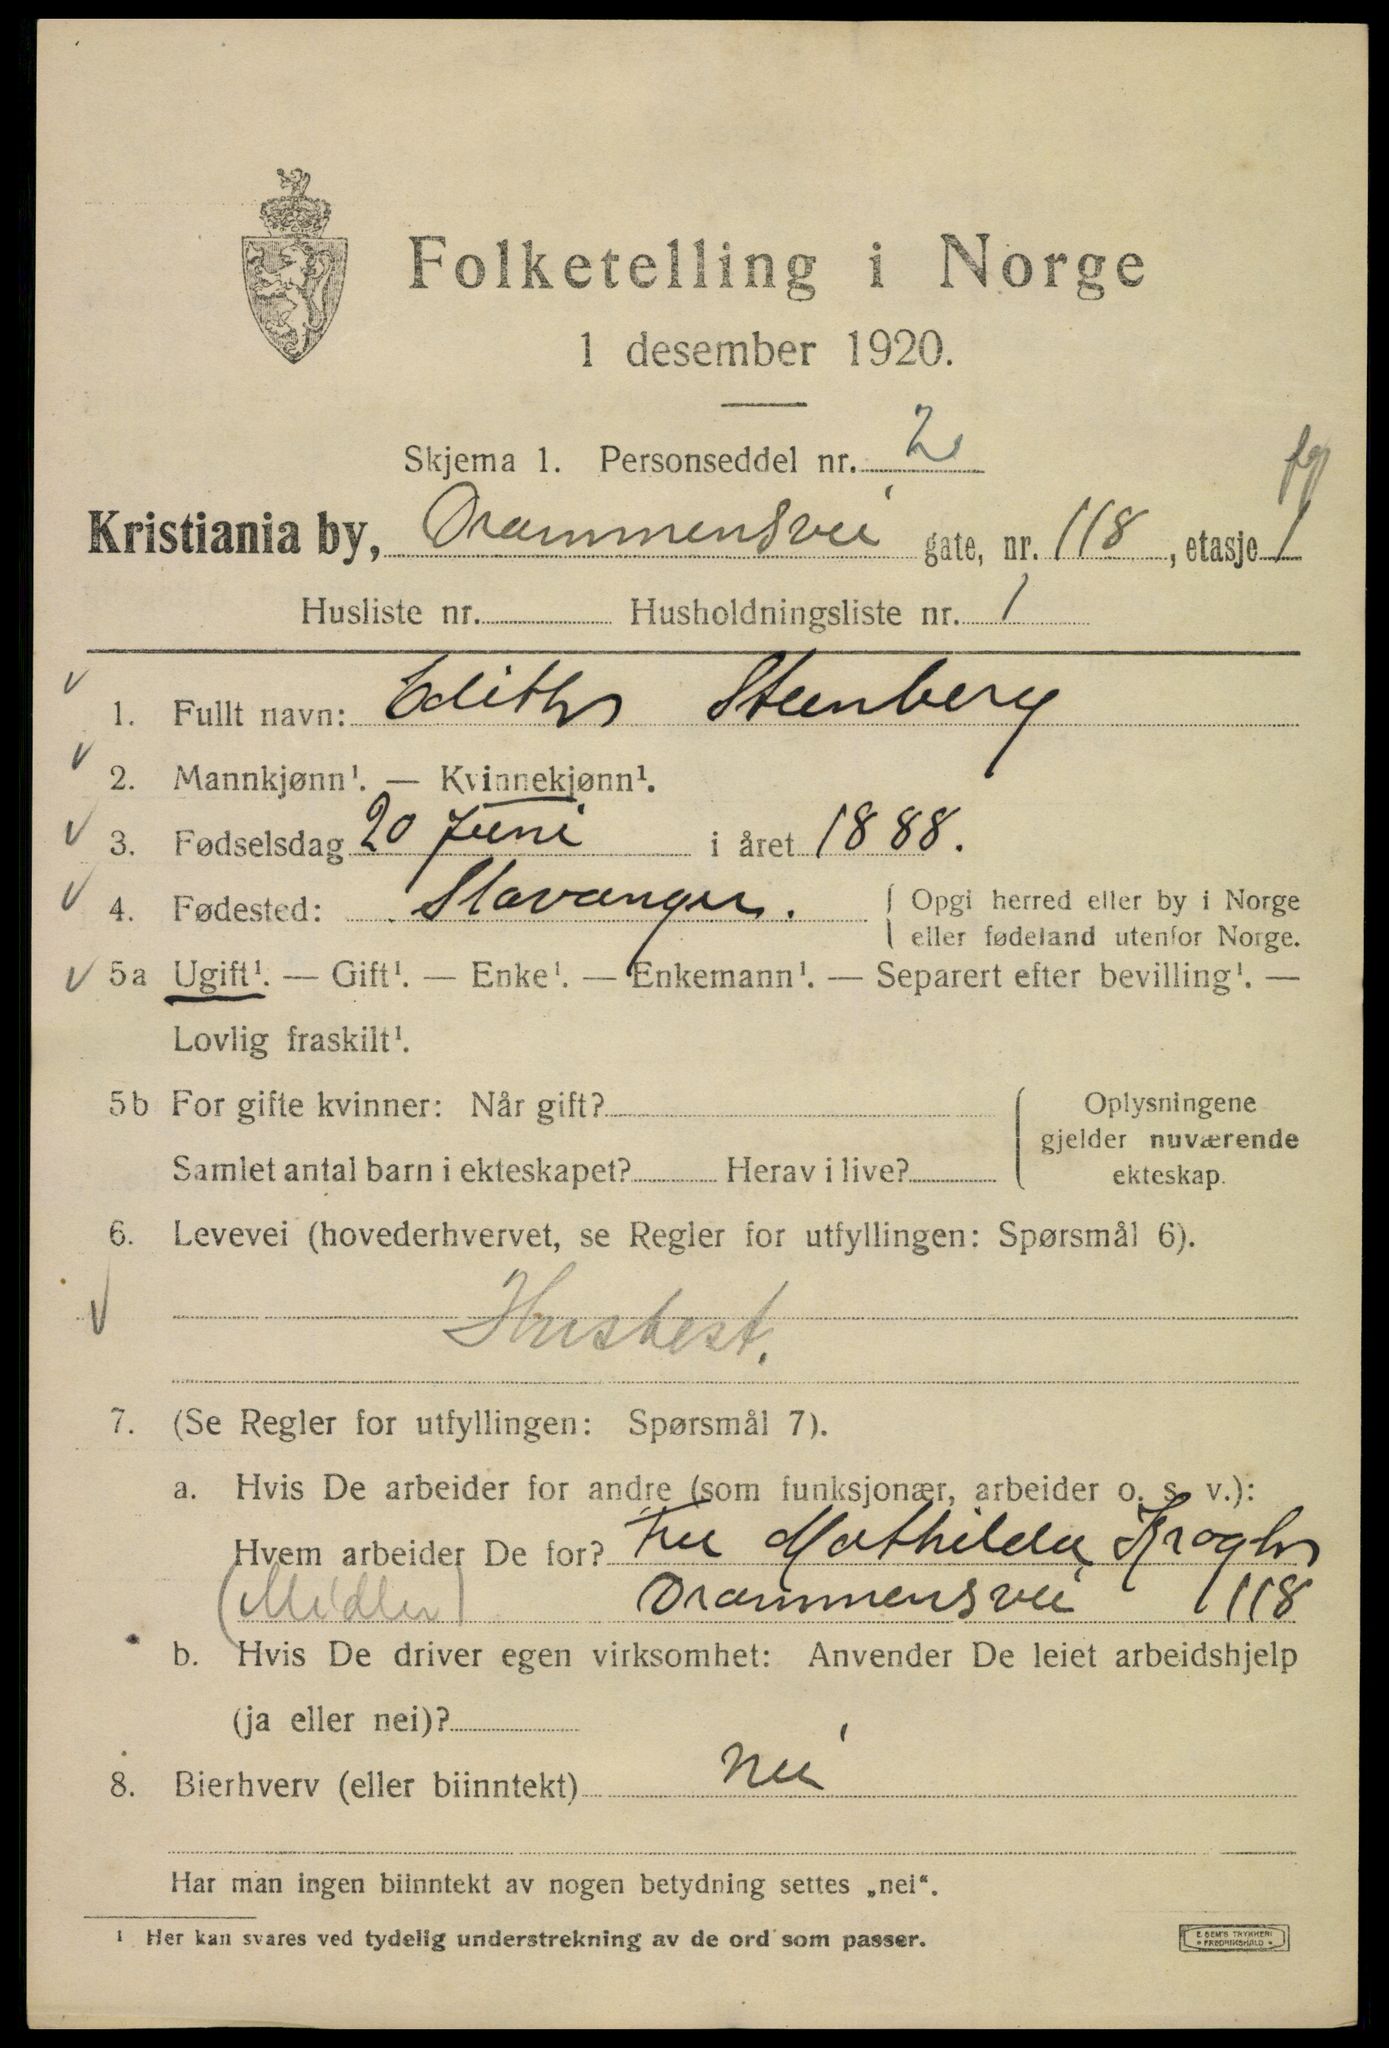 Folketelling i Norge
1 desember 1920.
Skjema 1. Personseddel nr. 2
Kristiania by, Drammensvei gate, nr. 118, etasje 1
Husliste nr. Husholdningsliste nr. 1
1. Fullt navn: Edith Steenberg
2. Mannkjønn¹. — Kvinnekjønn¹.
3. Fødselsdag 20 Juni i året 1888.
4. Fødested: Stavanger. Opgi herred eller by i Norge
eller fødeland utenfor Norge.
5a Ugift¹. — Gift¹. — Enke¹. — Enkemann¹. — Separert efter bevilling¹. —
Lovlig fraskilt¹.
5b For gifte kvinner: Når gift?
Samlet antal barn i ekteskapet? Herav i live?
Oplysningene
gjelder nuværende
ekteskap.
6. Levevei (hovederhvervet, se Regler for utfyllingen: Spørsmål 6).
Husbest.
7. (Se Regler for utfyllingen: Spørsmål 7).
a. Hvis De arbeider for andre (som funksjonær, arbeider o. s. v.):
Hvem arbeider De for? Fru Mathilde Krogh
(Midler) Drammensvei 118
b. Hvis De driver egen virksomhet: Anvender De leiet arbeidshjelp
(ja eller nei)?
8. Bierhverv (eller biinntekt) nei
Har man ingen biinntekt av nogen betydning settes „nei“.
¹ Her kan svares ved tydelig understrekning av de ord som passer.
E. SEM'S TRYKKERI
• FREDRIKSHALD •